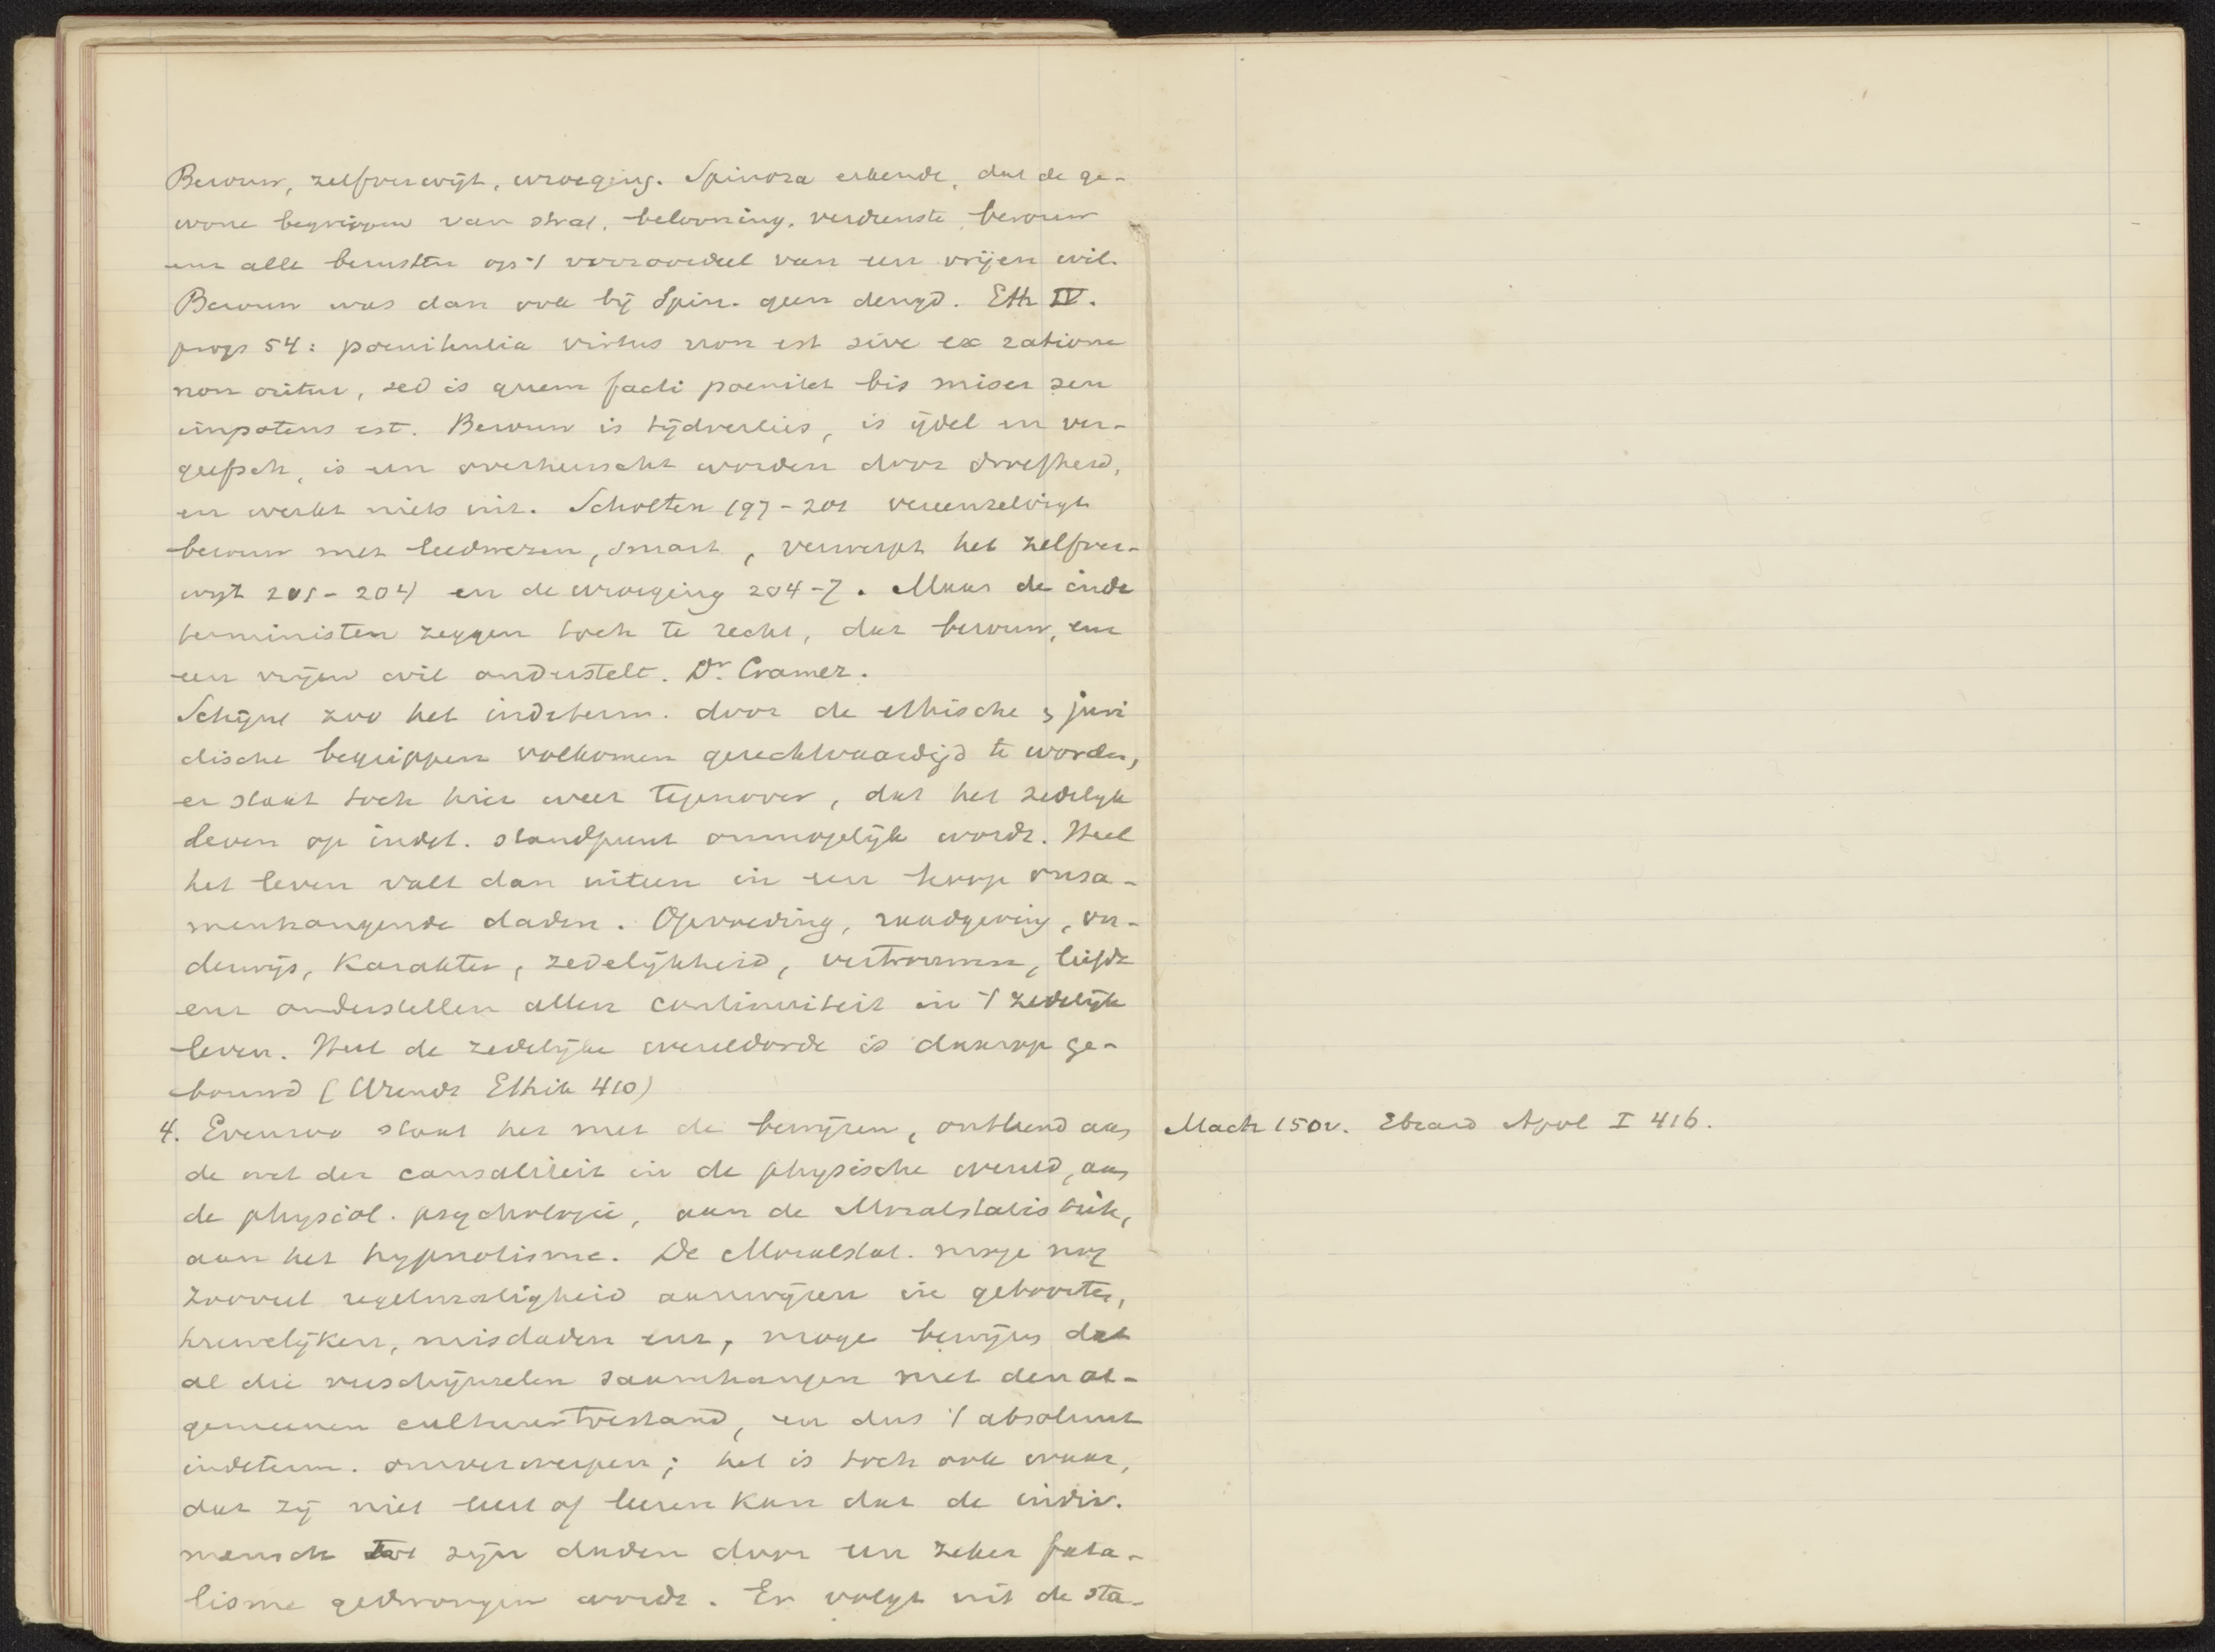 Berouw, zelfverwijt, wroeging. Spinoza erkende, dat de ge-
wone begrippen van straf, belooning, verdienste, berouw
enz alle berusten op 't vooroordeel van een vrijen wil.
Berouw was dan ook bij Spin. geen deugd. Eth IV.
prop 54: poenitentia virtus non est sive ex ratione
non oritur, sed is quem facti poenitet bis miser seu
impotens est. Berouw is tijdverlies, is ijdel en ver-
geefsch, is een overheerscht worden door droefheid,
en werkt niets uit. Scholten 197-201 vereenzelvigt
berouw met leedwezen, smart, verwerpt het zelfver-
wijt 201-204 en de wroeging 204-7. Maar de inde
terministen zeggen toch te recht, dat berouw, enz
een vrijen wil onderstelt. Dr. Cramer.
Schijnt zoo het indeterm. door de ethische & juri
dische begrippen volkomen gerechtvaardigd te worden,
er staat toch hier weer tegenover, dat het zedelijk
leven op indet. standpunt onmogelijk wordt. Heel
het leven valt dan uiteen in een hoop onsa-
menhangende daden. Opvoeding, raadgeving, on-
derwijs, karakter, zedelijkheid, vertrouwen, liefde
enz onderstellen allen continuiteit in 't zedelijk
leven. Heel de zedelijke wereldorde is daarop ge-
bouwd (Wundt Ethik 410)
4. Evenzoo staat het met de bewijzen, ontleend aan
Mach 150v. Ebrard Apol I 416.
de wet der causaliteit in de physische wereld, aan
de physiol. psychologie, aan de Moralstatistiek,
aan het hypnotisme. De Moralstat. moge nog
zooveel regelmatigheid aanwijzen in geboorten,
huwelijken, misdaden enz, moge bewijzen dat
al die verschijnselen saamhangen met den al-
gemeenen cultuurtoestand, en dus 't absoluut
indeterm. omverwerpen; het is toch ook waar,
dat zij niet leert of leeren kan dat de indiv.
mensch tot zijn daden door een zeker fata-
lisme gedwongen wordt. Er volgt uit de sta-